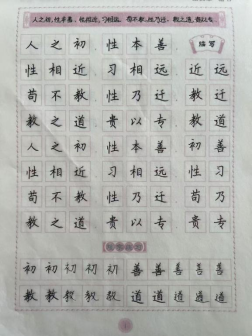 人之初,性本善。性相近,习相远。苟不教,性乃迁。教之道,贵以专。
人之初 性本善 描写
性相近 习相远 近远
苟不教 性乃迁 教迁
教之道 贵以专 教道
人之初 性本善 初善
性相近 习相远 性习
苟不教 性乃迁 苟乃
教之道 贵以专 贵专
初初初初初善善善善善
教教教教教道道道道道